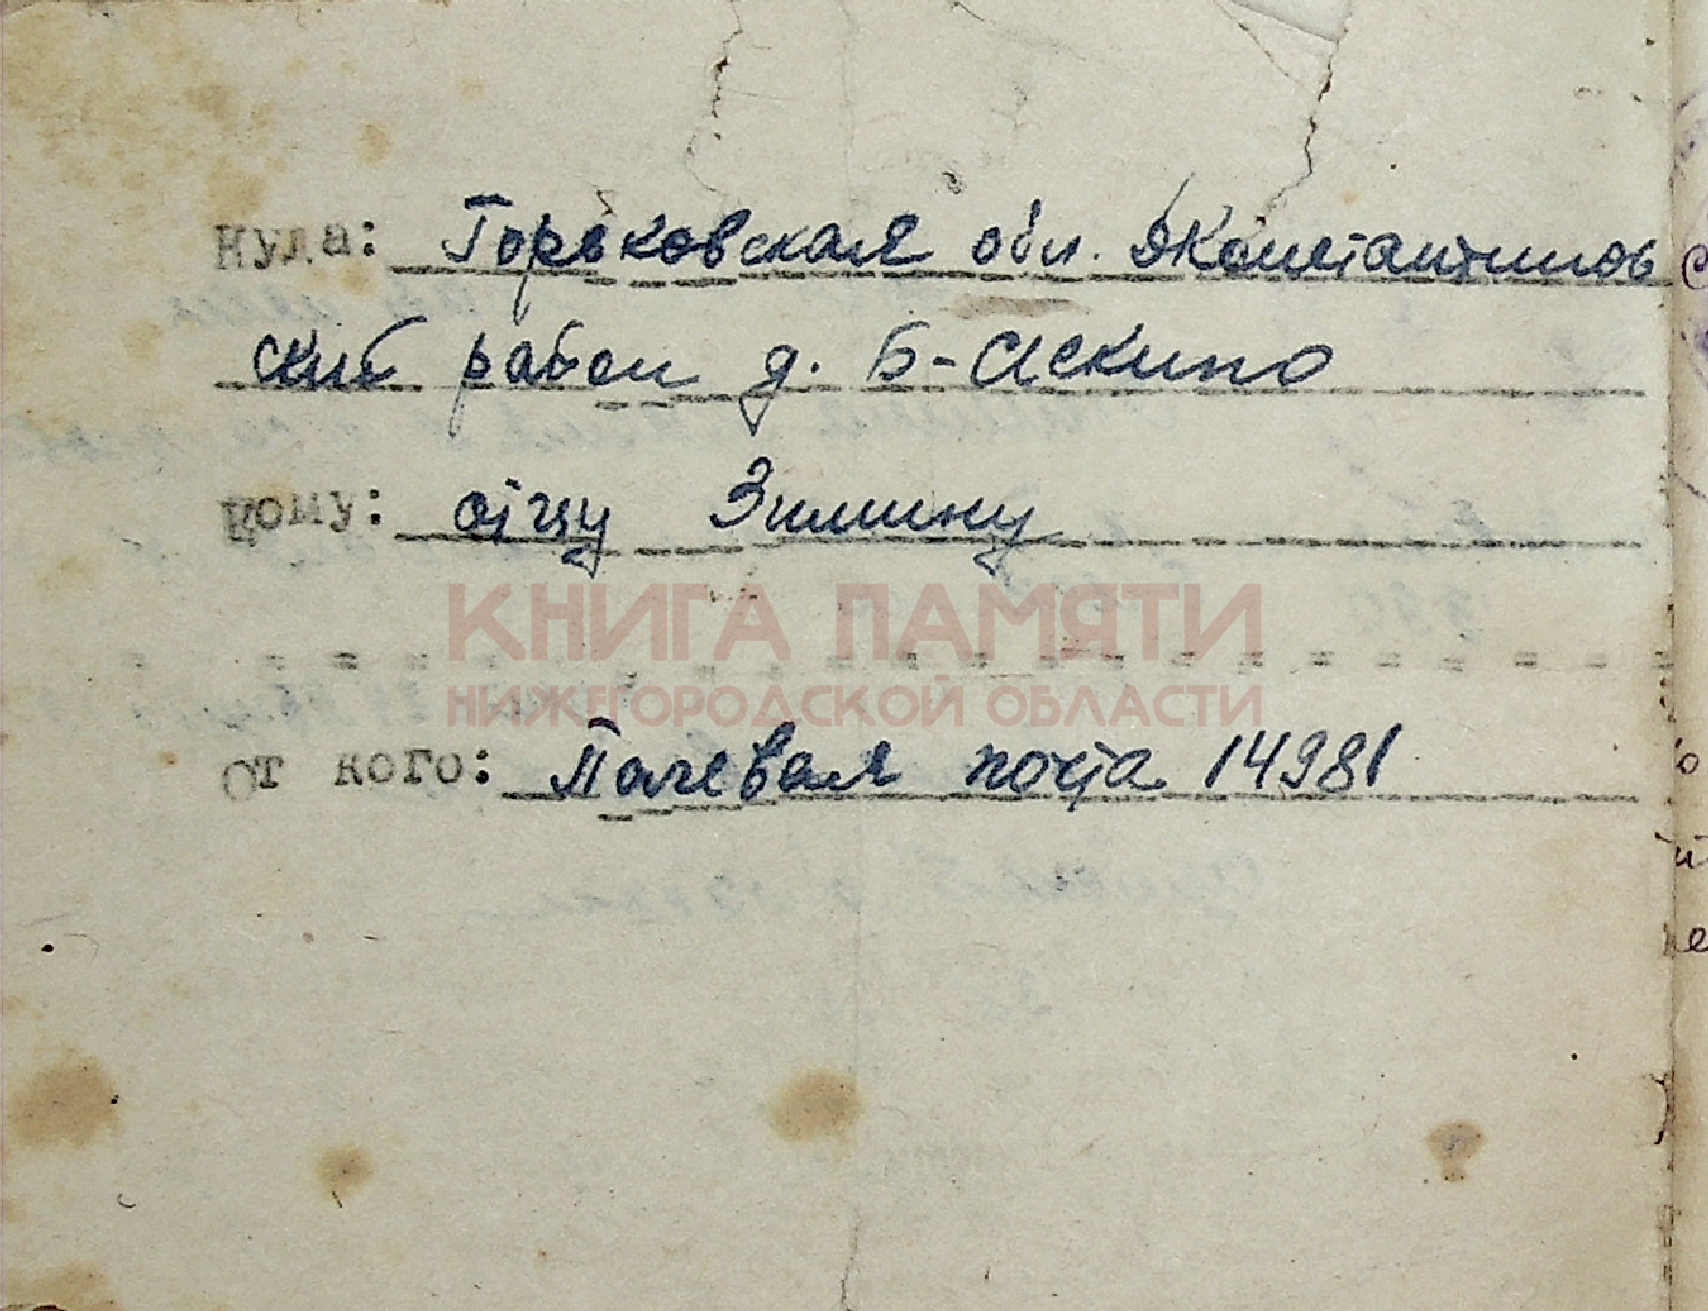 Куда: Горьковская обл. ДКонстантинов
ский район д. Б-Аскино
Кому: отцу Зимину
КНИГА ПАМЯТИ
НИЖЕГОРОДСКОЙ ОБЛАСТИ
От кого: Полевая почта 14981